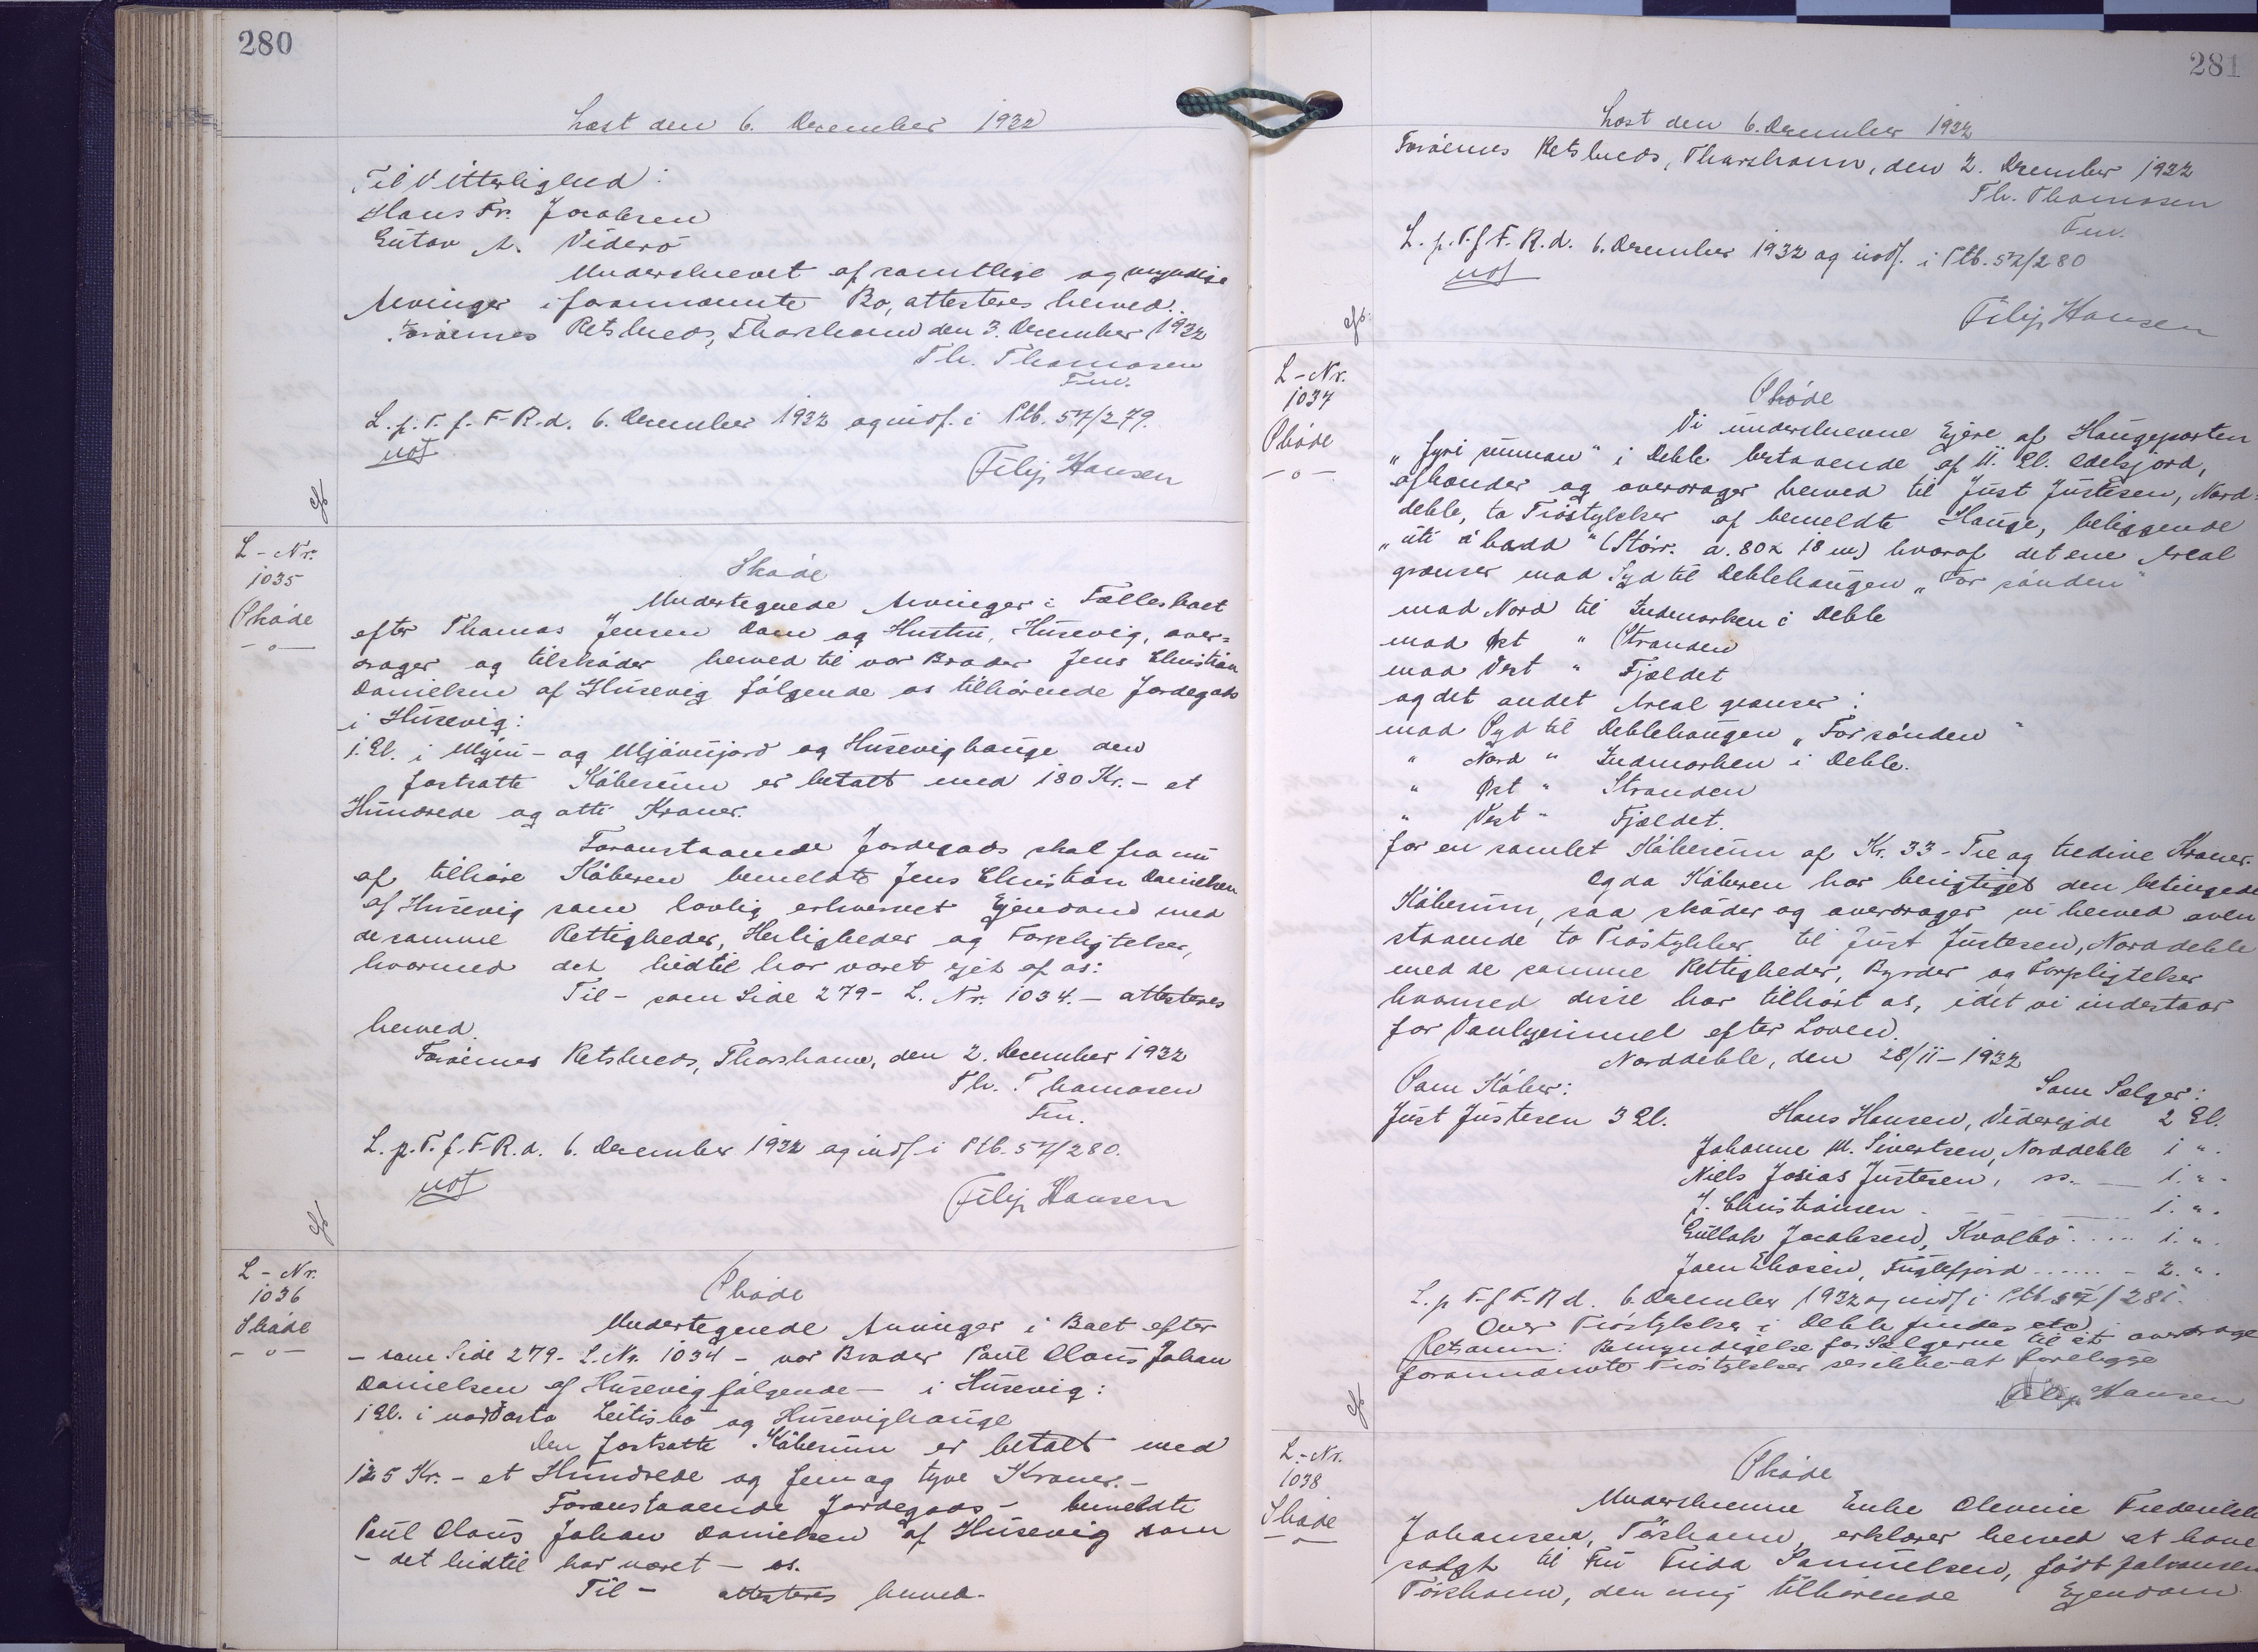 280
Læst den 6. December 1932
Til Vitterlighed:
Hans Fr. Jacobsen
Gutav A. Viderö
Underskrevet af samtlige og myndige
Arvinger i forannævnte Bo, attesteres herved.
Færøernes Retskreds, Thorshavn den 3. December 1932
Th. Thomassen
Fm.
L. p. T. f. F. R. d. 6. December 1932 og indf. i Ptb. 57/279.
not
Filip Hansen
L-Nr.
1035
Skøde
-o-
Skøde
Undertegnede Arvinger i Fællesboet
efter Thomas Jensen Dam og Hustru, Húsevig, over=
drager og tilskøder herved til vor Broder Jens Christian
Danielsen af Húsevig følgende os tilhørende Jordegods
i Húsevig:
1 Gl. i Mýru- og Mjávujørd og Húsevighauge den
fastsatte Købesum er betalt med 180 Kr. - et
Hundrede og otti Kroner.
Foranstaaende Jordegods skal fra nu
af tilhøre Køberen bemeldte Jens Christian Danielsen
af Húsevig som lovlig erhvervet Ejendom med
de samme Rettigheder, Herligheder og Forpligtelser,
hvormed det hidtil har været ejet af os:
Til - som Side 279 - L. Nr. 1034. - attesteres
herved.
Færøernes Retskreds, Thorshavn, den 2. December 1932
Th. Thomassen
Fm.
L. p. T. f. F. R. d. 6. December 1932 og indf. i Ptb. 57/280.
not
Filip Hansen
L-Nr.
1036
Skøde
-o-
Skøde
Undertegnede Arvinger i Boet efter
- som Side 279 - L. Nr. 1034 - vor Broder Poul Olaus Johan
Danielsen af Húsevig følgende - i Húsevig:
1 Gl. i norðasta Leitisbø og Húsevighauge
Den fastsatte Købesum er betalt med
125 Kr. - et Hundrede og fem og tyve Kroner. -
Foranstaaende Jordegods - bemeldte
Poul Olaus Johan Danielsen af Húsevig som
- det hidtil har været - os.
Til - attesteres herved.
281
Læst den 6. December 1932
Færøernes Retskreds, Thorshavn, den 2. December 1932
Th. Thomassen
Fm.
L. p. T. f. F. R. d. 6. December 1932 og indf. i Ptb. 57/280
not
Filip Hansen
L-Nr.
1037
Skøde
-o-
Skøde
Vi underskrevne Ejere af Haugeparten
„fyri sunnan" i Deble bestaaende af 11. Gl. Odelsjord,
afhænder og overdrager herved til Just Justesen, Nord=
deble, to Tröstykker af bemeldte Hauge, beliggende
„úti á hadd" (Størr. a. 80 x 18 m) hvoraf det ene Areal
grænser mod Syd til Deblehaugen „For sønden"
mod Nord til Indmarken i Deble
mod Øst " Stranden
mod Vest " Fjældet
og det andet Areal grænser:
mod Syd til Deblehaugen „For sønden"
" Nord " Indmarken i Deble.
" Øst " Stranden
" Vest " Fjældet.
for en samlet Købesum af Kr. 33 - Tre og tredive Kroner.
Og da Køberen har berigtiget den betingede
Købesum, saa skøder og overdrager vi herved oven
staaende to Tröstykker til Just Justesen, Norddeble
med de samme Rettigheder, Byrder og Forpligtelser
hvormed disse har tilhørt os, idet vi indestaar
for Vanhjemmel efter Loven.
Norddeble, den 28/11 - 1932
Som Køber: Som Sælger:
Just Justesen 3 Gl. Hans Hansen, Viderejde 2 Gl.
Johanne M. Sivertsen, Norddeble 1 ".
Niels Josias Justesen, ss. - 1. ".
J. Christiansen - 1. ".
Gullak Jacobsen, Kvalbø ..... 1. ".
Joen Eliasen, Fuglefjord ...... - 2. ".
L. p. T. f. F. R. d. 6. December 1932 og indf. i Ptb. 57/281.
Over Tröstykker i Deble findes etc)
Retsanm: Bemyndigelse for Sælgerne til at overdrage
forannævnte Tröstykker ses ikke at foreligge
Filip Hansen
L.-Nr.
1038
Skøde
-o-
Skøde
Underskrevne Enke Olevine Frederikke
Johansen, Tórshavn, erklærer herved at have
solgt til Fru Frida Samuelsen, født Johansen
Tórshavn, den mig tilhørende Ejendom